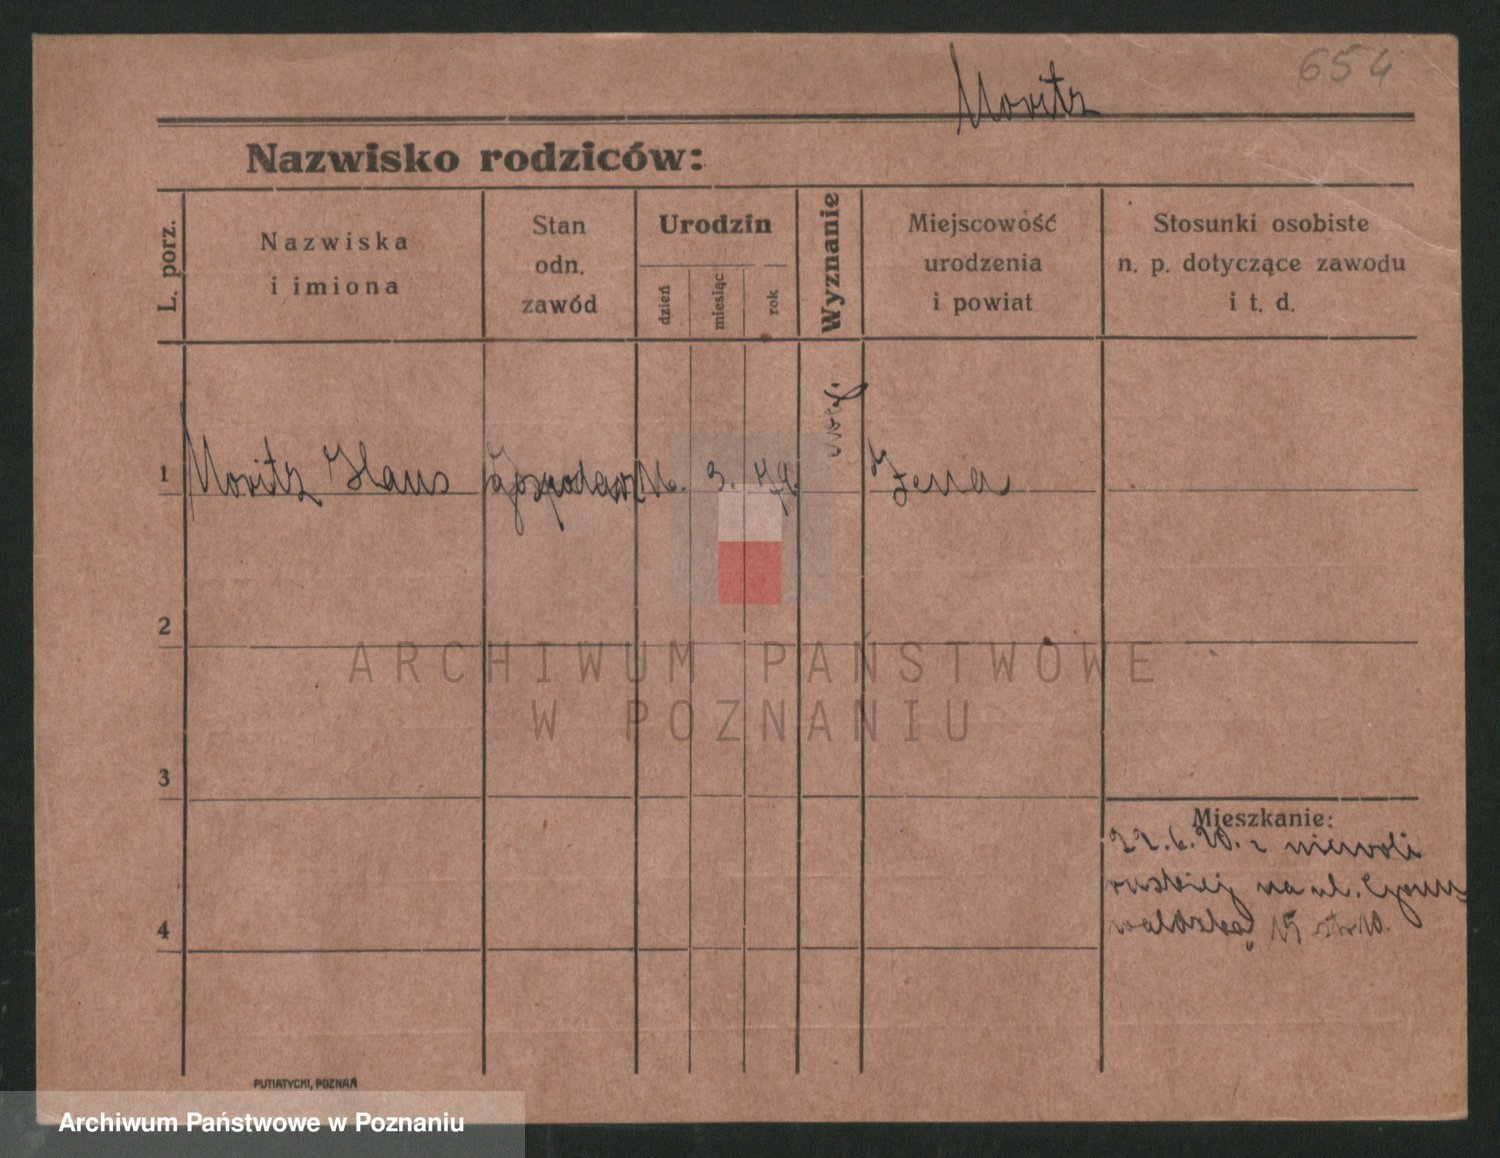 Moritz
654
Nazwisko rodziców:
L. porz.
Nazwiska
i imiona
Stan
odn.
zawód
Urodzin
dzień
miesiąc
rok
Wyznanie
Miejscowość
urodzenia
i powiat
Stosunki osobiste
n. p. dotyczące zawodu
i t. d.
1
Moritz Hans
16. 3. 79.
Jena
2
3
4
Mieszkanie:
22.6.20. z niewoli
ruskiej na ul.
PUTIATYCKI, POZNAŃ
ARCHIWUM PAŃSTWOWE
W POZNANIU
Archiwum Państwowe w Poznaniu